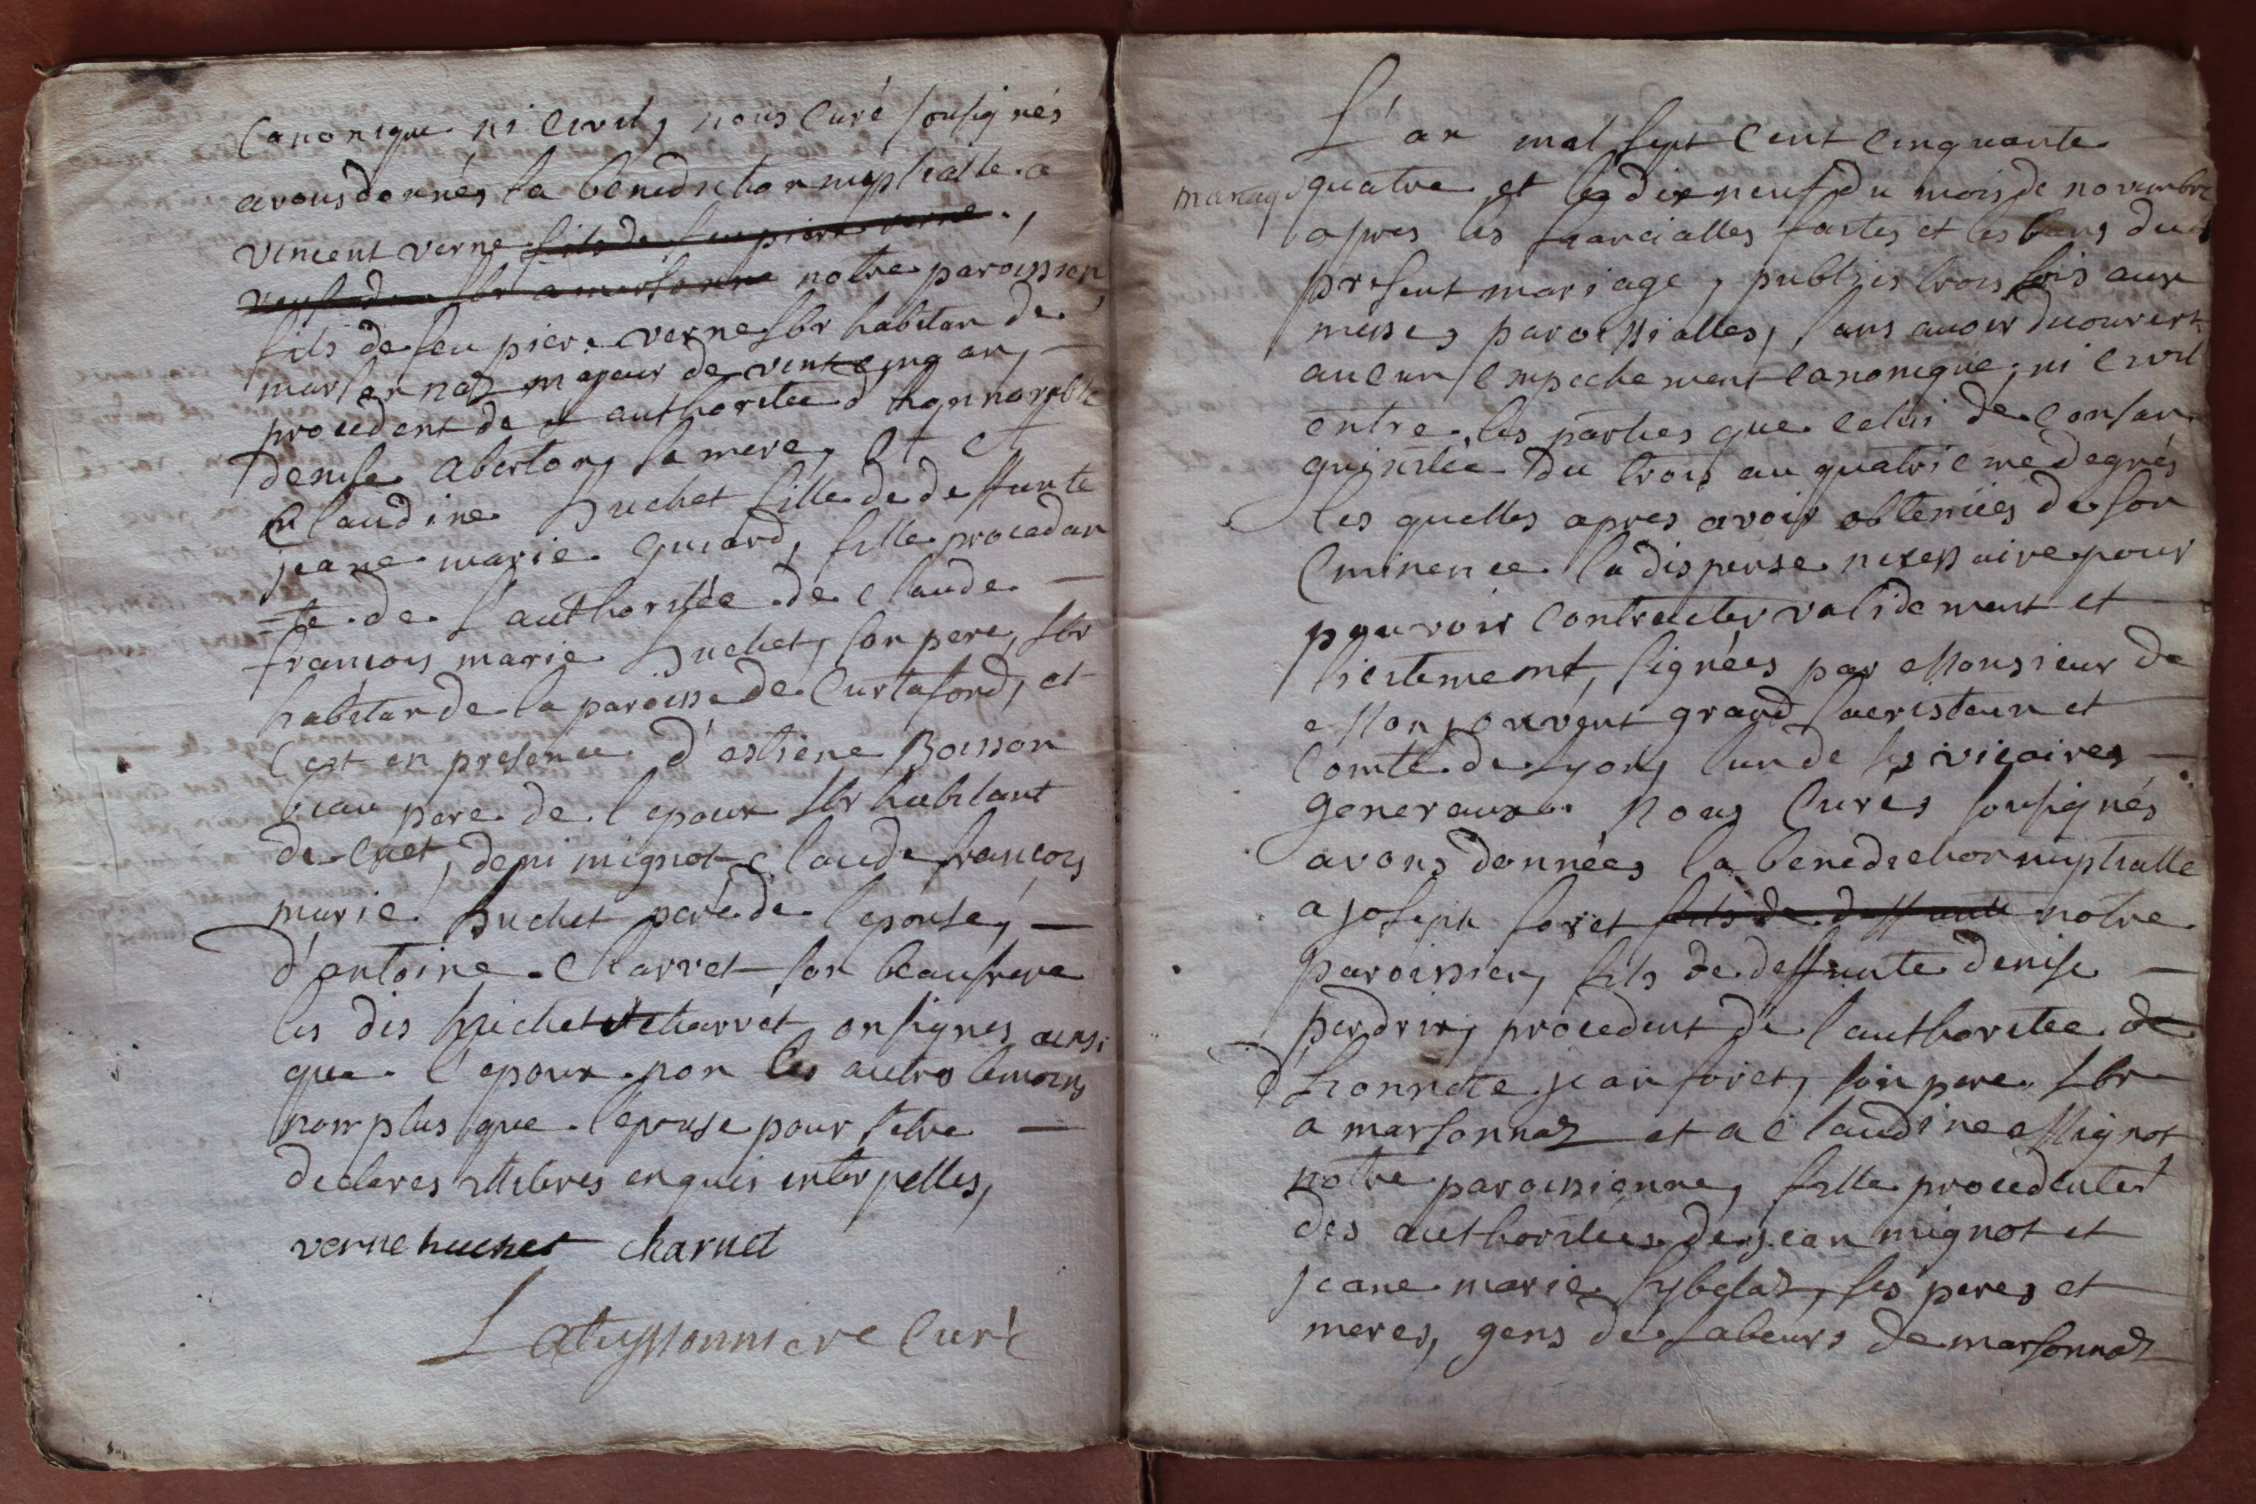 Canonique ni civil, nous Curé sousignés
avons donnés la benediction nuptialle a
vincent verne fils de feu pierre verne
notre paroissien,
fils de feu piere verne lbr habitan de
marsonnaz majeur de vent cinq an,
procedent de authoritee d honnorable
denise aberton, sa mere, et
Claudine huchet fille de deffunte
jeane marie guiard, fille procedan
=te de l'authoritée de claude
francois marie huchet, son pere, lbr
habitan de la paroisse de Curtafond, et
C'est en presence d'estiene Boisson
beau pere de l'epoux lbr habitant
de Cuet, deni mignot claude francois
marie huchet pere de l'epouse,
d'antoine Charvet son beaufrere
les dis huchet et charvet on signes ainsi
que l'epoux non les autres temoins
nomplus que l'epouse pour s'etre
declares illiteres enquis interpelles,
verne huchet charuet
Lateyssonniere Curé
L'an mil sept Cent Cinquante
mariage
quatre et le dix neuf du mois de novembre
apres les fiancialles faites et les bans du
present mariage, publies trois fois aux
messes paroissialles, sans avoir decouvert
aucun empechement canonique, ni civil
entre les parties que celui de consan
guinitée du trois au quatrieme degrés
les quelles apres avoir obtenües de son
Eminence la dispense nesessaire pour
pouvoir contracter validement et
licitement, signées par Monsieur de
Monjouvent grand sacristain et
Comte de Lyon, l'un de ses vicaires
generaux. Nous Curés sousignés
avons données la benediction nuptialle
a joseph foret fils de deffunte notre
paroissien, fils de deffunte denise
perdrix, procedent de l'authoritee de
d'honnete jean foret, son pere lbr
a marsonnaz et a Claudine Mignot
notre paroisienne, fille procedente
des authoritées de jean mignot et
jeane marie sybelas, ses peres et
meres, gens de labeurs de marsonnaz